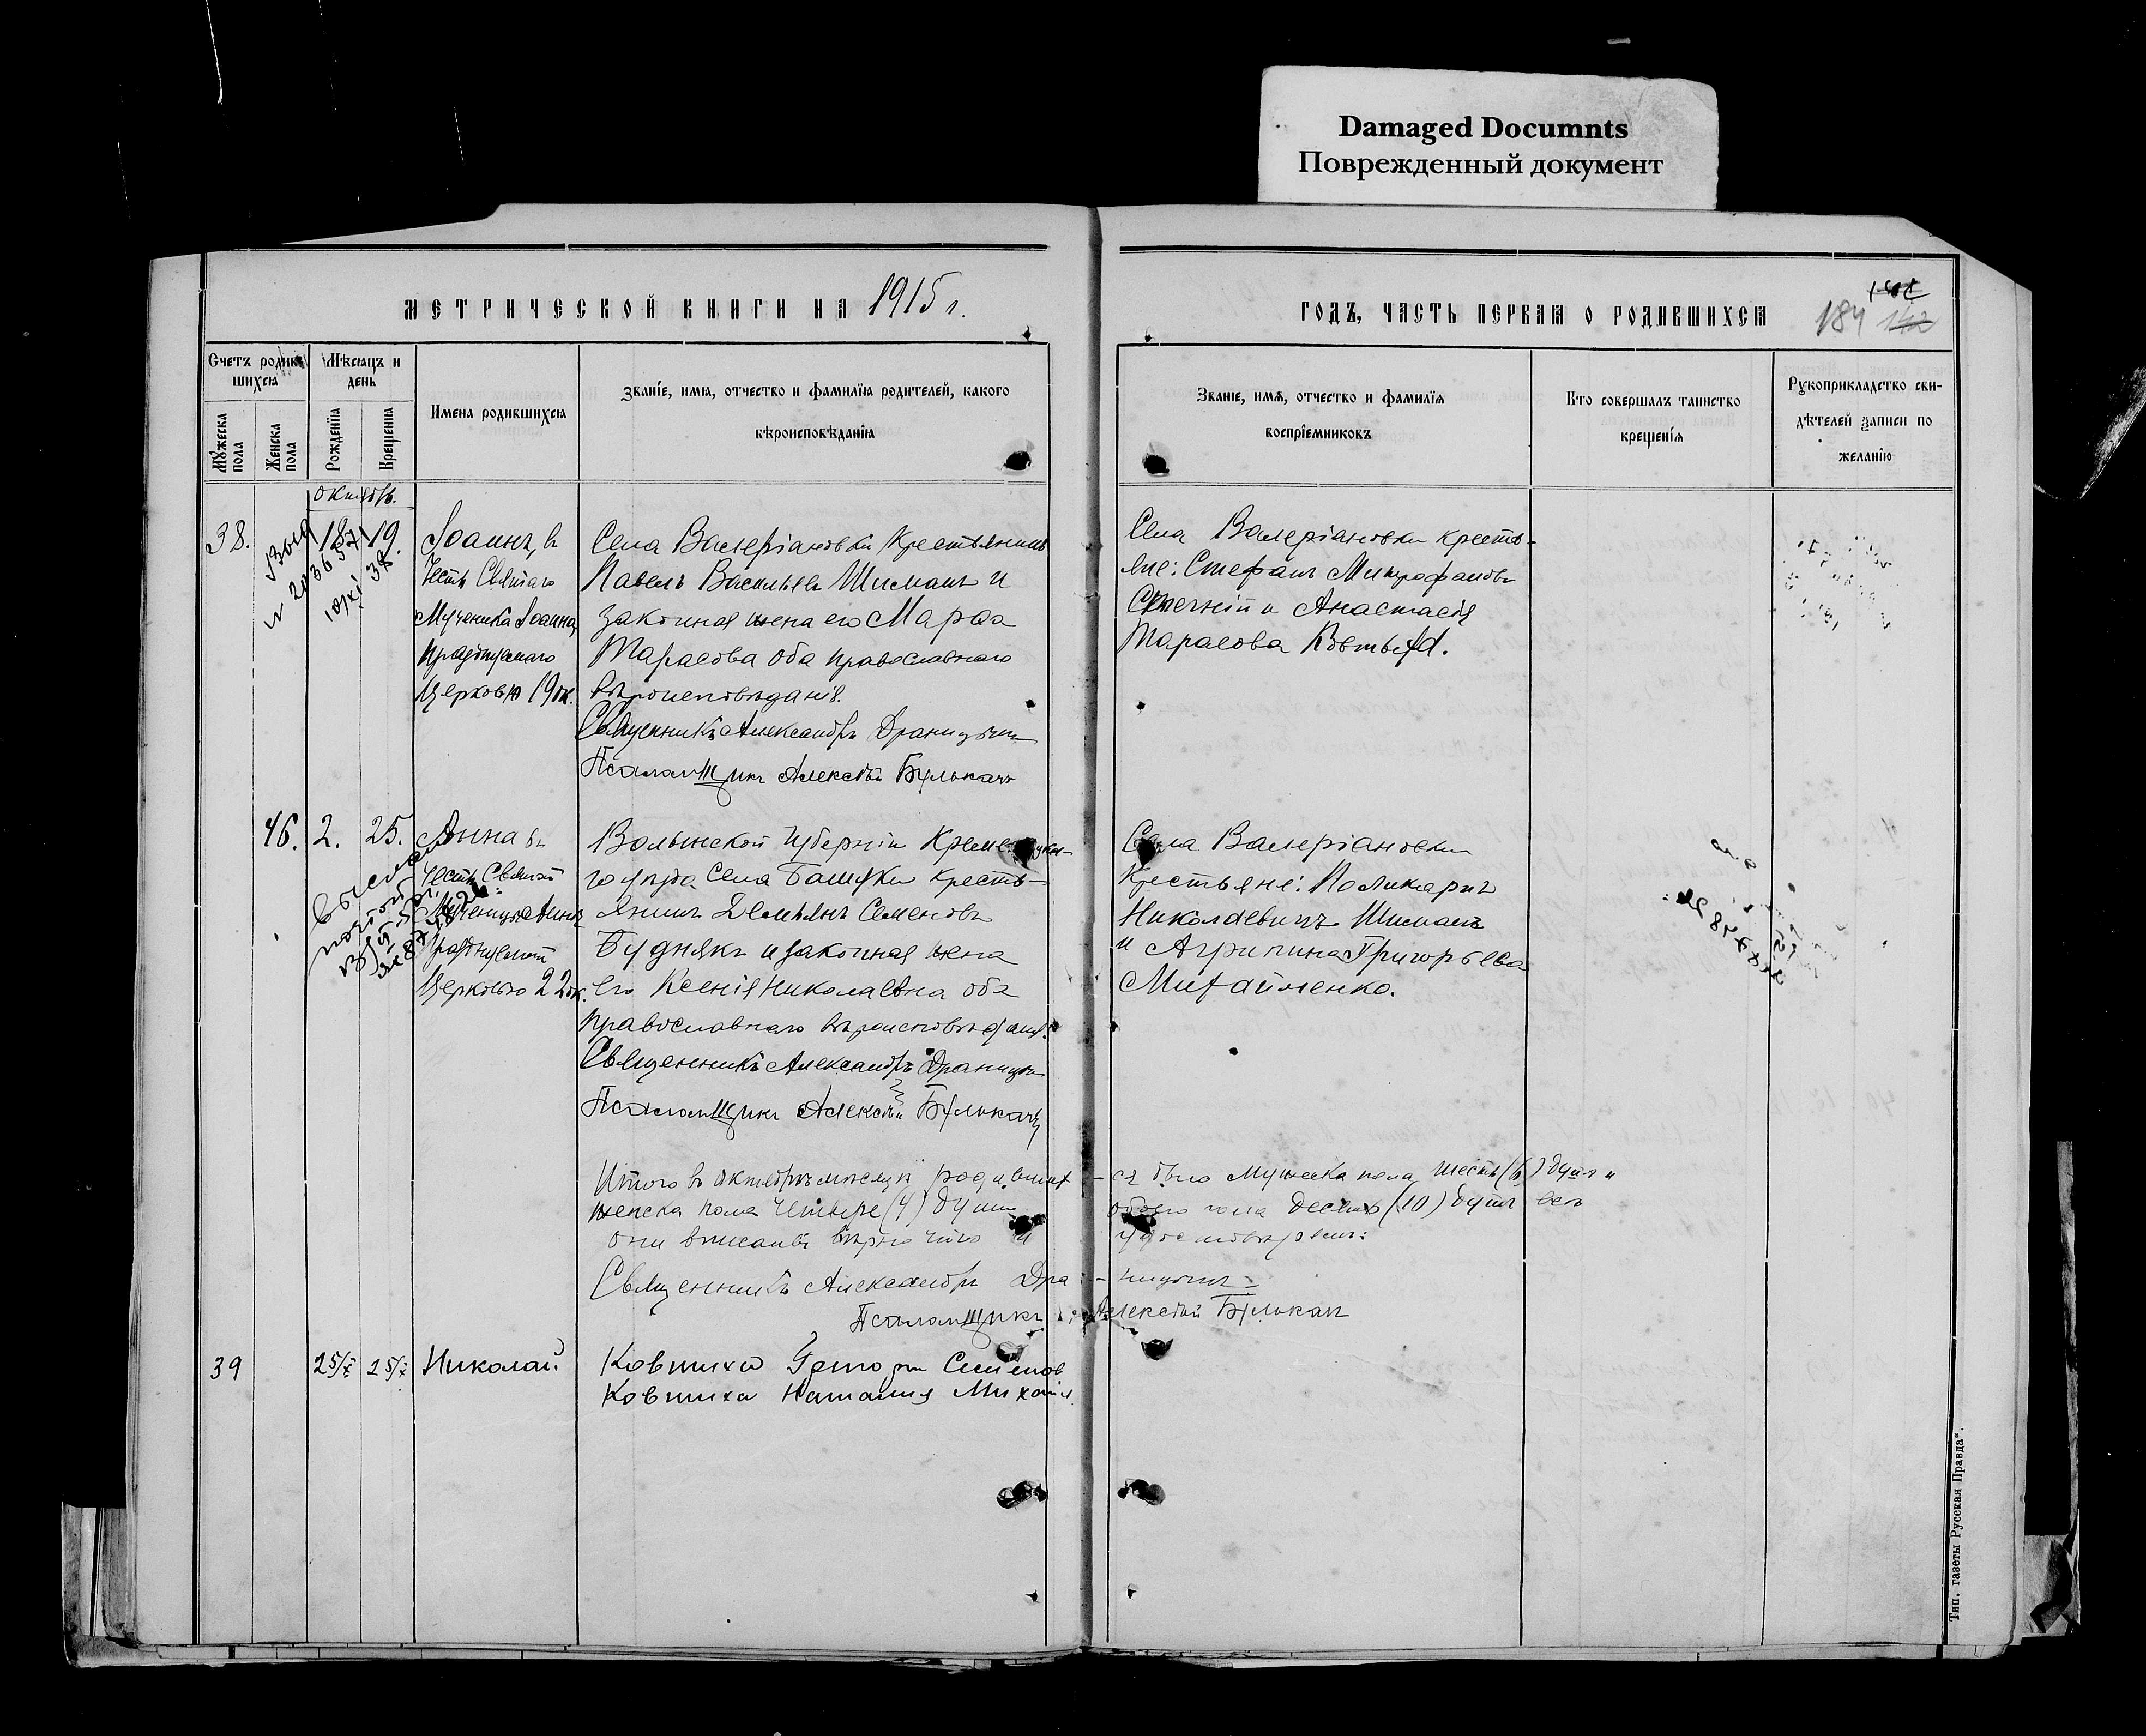 Damaged Documnts
Поврежденный документ
МЕТРИЧЕСКОЙ КНИГИ НА 1915 г.
ГОДЪ, ЧАСТЬ ПЕРВАЯ О РОДИВШИХСЯ
184 142
Счетъ родив-
шихся
Мѣсяцъ и
день
Мужеска
пола
Женска
пола
Рожденія
Крещенія
Имена родившихся
Званіе, имя, отчество и фамилія родителей, какого
вѣроисповѣданія
Званіе, имя, отчество и фамилія
воспріемниковъ
Кто совершалъ таинство
крещенія
Рукоприкладство сви-
дѣтелей записи по
желанію
октябр.
38.
18 19.
Іоаннъ, въ
честь Святаго
Мученика Іоанна,
празднуемаго
Церковью 19 ок.
Села Валеріановки крестьянинъ
Павелъ Васильевъ Шиманъ и
законная жена его Марѳа
Тарасова оба православнаго
вѣроисповѣданія.
Священникъ Александръ Драницынъ
Псаломщикъ Алексѣй Булюканъ
Села Валеріановки кресть-
яне: Стефанъ Митрофановъ
и Анастасія
Тарасова
46. 2. 25.
Анна въ
честь Святой
Мученицы Анны
празднуемой
Церковью 22 ок.
Волынской губерніи
го уѣзда села Башуки кресть-
янинъ Демьянъ Семеновъ
Буднякъ и законная жена
его Ксенія Николаевна оба
православнаго вѣроисповѣданія.
Священникъ Александръ Драницынъ
Псаломщикъ Алексѣй Булюканъ
Села Валеріановки
крестьяне: Поликарпъ
Николаевичъ Шиманъ
и Агрипина Григорьева
Митайленко.
Итого въ октябрѣ мѣсяцѣ родивших-ся было мужеска пола шесть (6) душъ и
женска пола четыре (4) души обоего пола десять (10) душъ все
они вписаны вѣрно чѣмъ и удостовѣряемъ:
Священникъ Александръ Дра-ницынъ
Псаломщикъ: Алексѣй Булюканъ
39
25/X 25/X
Николай
Ковтиха Григори Семенов
Ковтиха Наталия Михайл
Тип. газеты Русская Правда“.